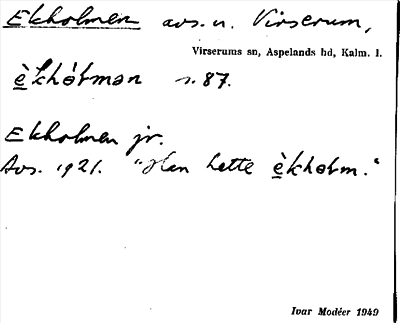 Ekholmen avs. u. Virserum,
Virserums sn, Aspelands hd, Kalm. l.
s. 87.
Ekholmen jr.
Avs. 1921. "Han hette èkholm."
Ivar Modéer 1949